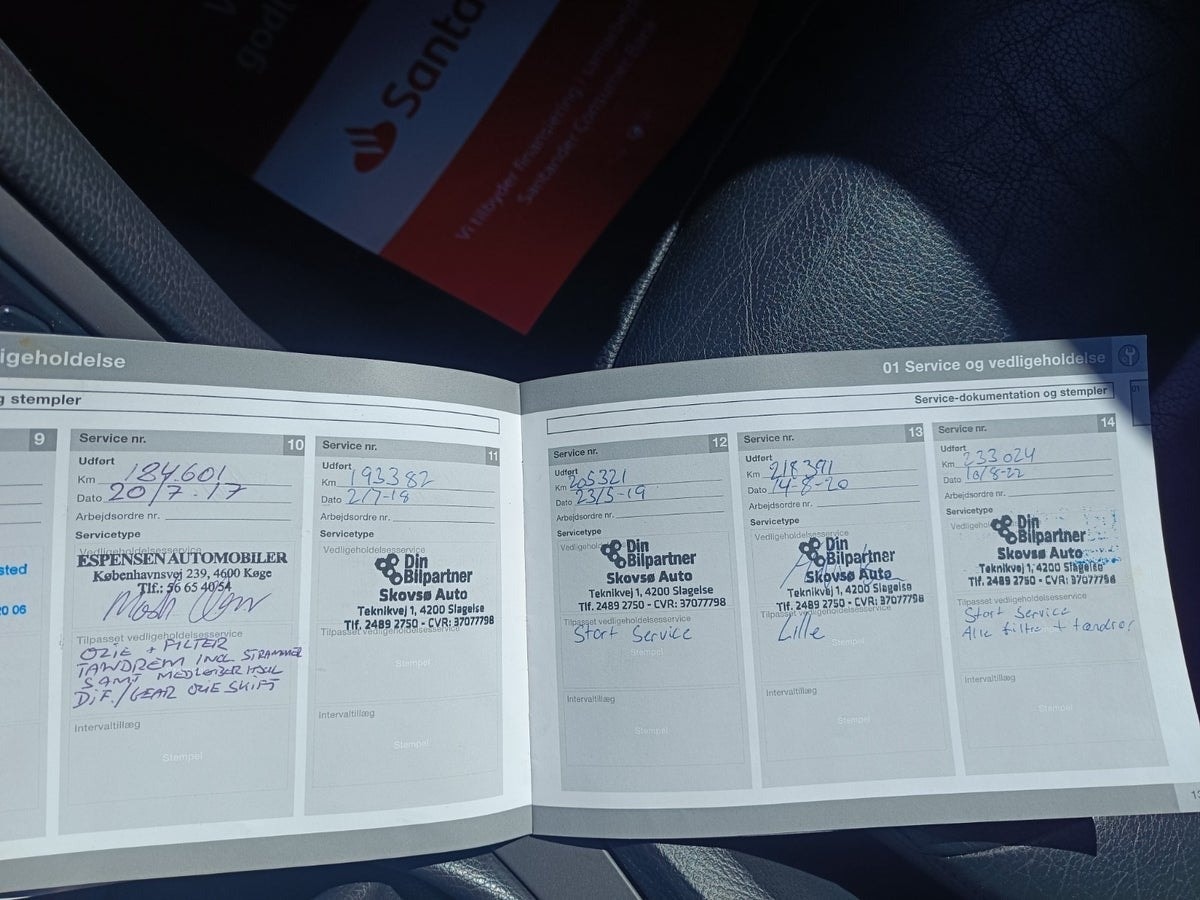 Santa
Vi tilbyder finansiering i samarbejde
Santander Consumer Bank
ligeholdelse
g stempler
9
sted
20 06
Service nr. 10
Udført
Km 184.601
Dato 20/7.17
Arbejdsordre nr.
Servicetype
Vedligeholdelsesservice
ESPENSEN AUTOMOBILER
Københavnsvej 239, 4600 Køge
Tlf.: 56 65 40 54
Tilpasset vedligeholdelsesservice
OLIE + FILTER
TANDREM INCL STRAMMER
SAMT MEDLØBERHJUL
DIF./GEAR OLIE SKIFT
Intervaltillæg
Stempel
Service nr. 11
Udført
Km 193382
Dato 2/7-18
Arbejdsordre nr.
Servicetype
Vedligeholdelsesservice
Din
Bilpartner
Skovsø Auto
Teknikvej 1, 4200 Slagelse
Tlf. 2489 2750 - CVR: 37077798
Tilpasset vedligeholdelsesservice
Stempel
Intervaltillæg
Stempel
01 Service og vedligeholdelse
01
Service-dokumentation og stempler
Service nr. 12
Udført
Km 205321
Dato 23/5-19
Arbejdsordre nr.
Servicetype
Din
Bilpartner
Skovsø Auto
Teknikvej 1, 4200 Slagelse
Tlf. 2489 2750 - CVR: 37077798
Tilpasset vedligeholdelsesservice
Stort Service
Stempel
Intervaltillæg
Stempel
Service nr. 13
Udført
Km 218391
Dato 14-8-20
Arbejdsordre nr.
Servicetype
Vedligeholdelsesservice
Din
Bilpartner
Skovsø Auto
Teknikvej 1, 4200 Slagelse
Tlf. 2489 2750 - CVR: 37077798
Tilpasset vedligeholdelsesservice
Lille
Stempel
Intervaltillæg
Stempel
Service nr. 14
Udført
Km 233024
Dato 10/8-22
Arbejdsordre nr.
Servicetype
Din
Bilpartner
Skovsø Auto
Teknikvej 1, 4200 Slagelse
Tlf. 2489 2750 - CVR: 37077798
Tilpasset vedligeholdelsesservice
Stort Service
Alle filtre + tændrør
Intervaltillæg
Stempel